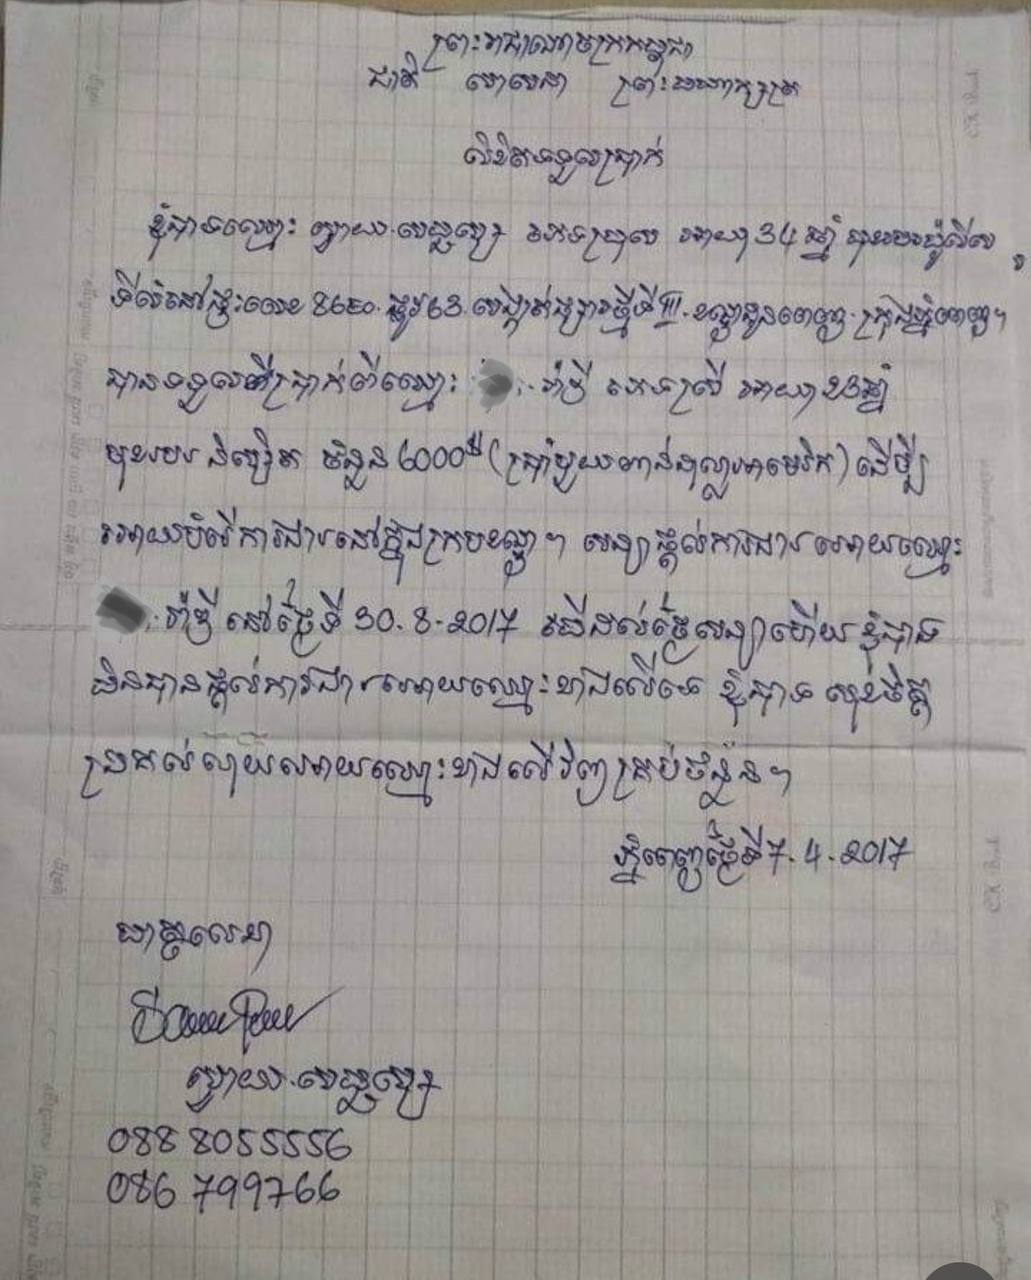 ព្រះរាជាណាចក្រកម្ពុជា
ជាតិ សាសនា ព្រះមហាក្សត្រ
លិខិតទទួលប្រាក់
ខ្ញុំបាទឈ្មោះ ស្វាយ ភេទប្រុស អាយុ 34 ឆ្នាំ មុខរបរប៉ូលីស
ទីលំនៅផ្ទះលេខ ផ្លូវ 63 សង្កាត់ផ្សារថ្មីទី III ខណ្ឌដូនពេញ ក្រុងភ្នំពេញ។
បានទទួលប្រាក់ពីឈ្មោះ ភេទស្រី អាយុ 23 ឆ្នាំ
មុខរបរ និស្សិត ចំនួន 6000$ (ប្រាំមួយពាន់ដុល្លាអាមេរិក) ដើម្បី
អោយបំរើការងារនៅក្នុងក្របខណ្ឌ។ សន្យាផ្តល់ការងារអោយឈ្មោះ
នៅថ្ងៃទី 30-8-2017 បើដល់ថ្ងៃសន្យាហើយ ខ្ញុំបាទ
មិនបានផ្តល់ការងារអោយឈ្មោះខាងលើទេ ខ្ញុំបាទ សុខចិត្ត
ប្រគល់លុយអោយឈ្មោះខាងលើវិញគ្រប់ចំនួន។
ភ្នំពេញថ្ងៃទី 7-4-2017
ហត្ថលេខា
ស្វាយ
088 8055556
086 799766